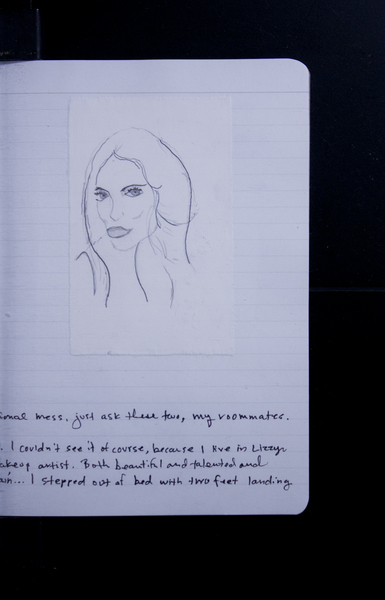 ional mess, just ask these two, my roommates.
. I couldn't see it of course, because I live in Lizzys
akeup artist. Both beautiful and talented and
ain... I stepped out of bed with two feet landing